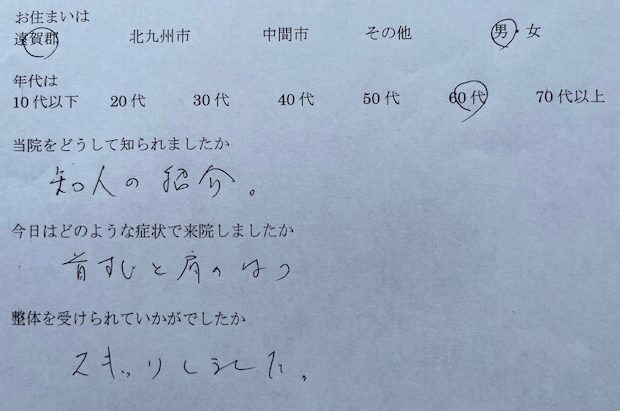 お住まいは
遠賀郡 北九州市 中間市 その他 男・女
年代は
10代以下 20代 30代 40代 50代 60代 70代以上
当院をどうして知られましたか
知人の紹介。
今日はどのような症状で来院しましたか
首すじと肩のはり
整体を受けられていかがでしたか
スキッリしました。